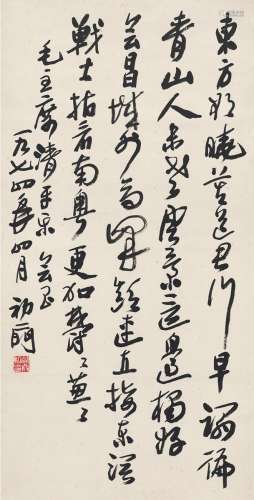 東方欲曉莫道君行早踏遍
青山人未老風景這邊獨好
会昌城外高峰顛連直接東溟
戰士指看南粵更加鬱々葱々
毛主席清平乐会昌
一九七四年四月